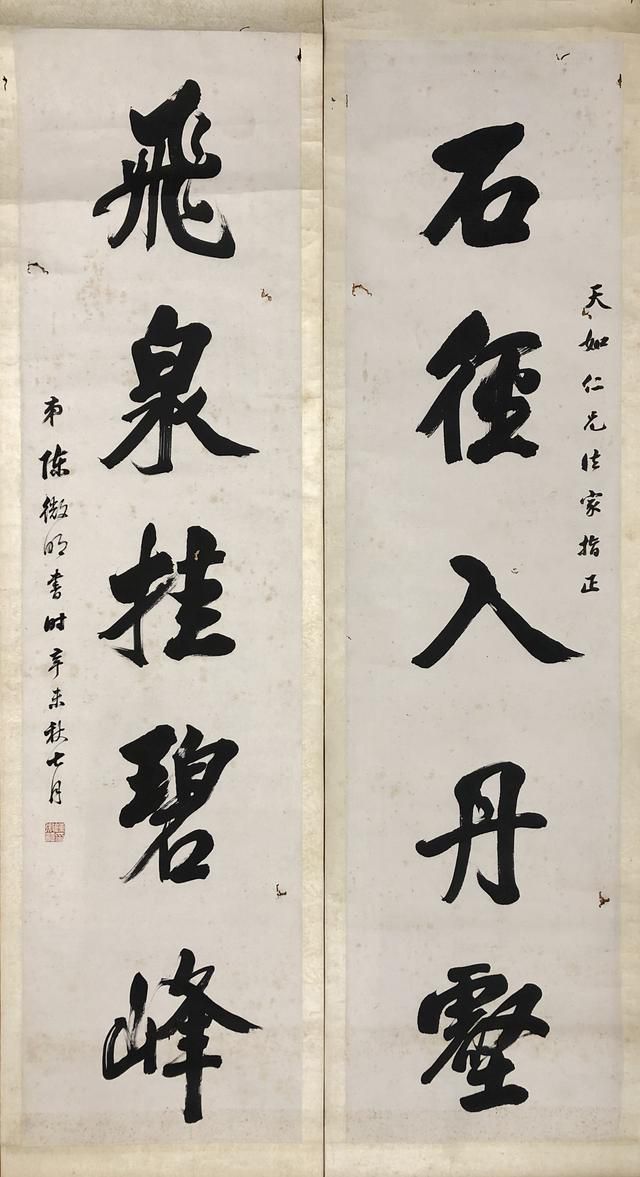 天如仁兄法家指正
石徑入丹壑
飛泉挂碧峰
弟陳微明書时辛未秋七月